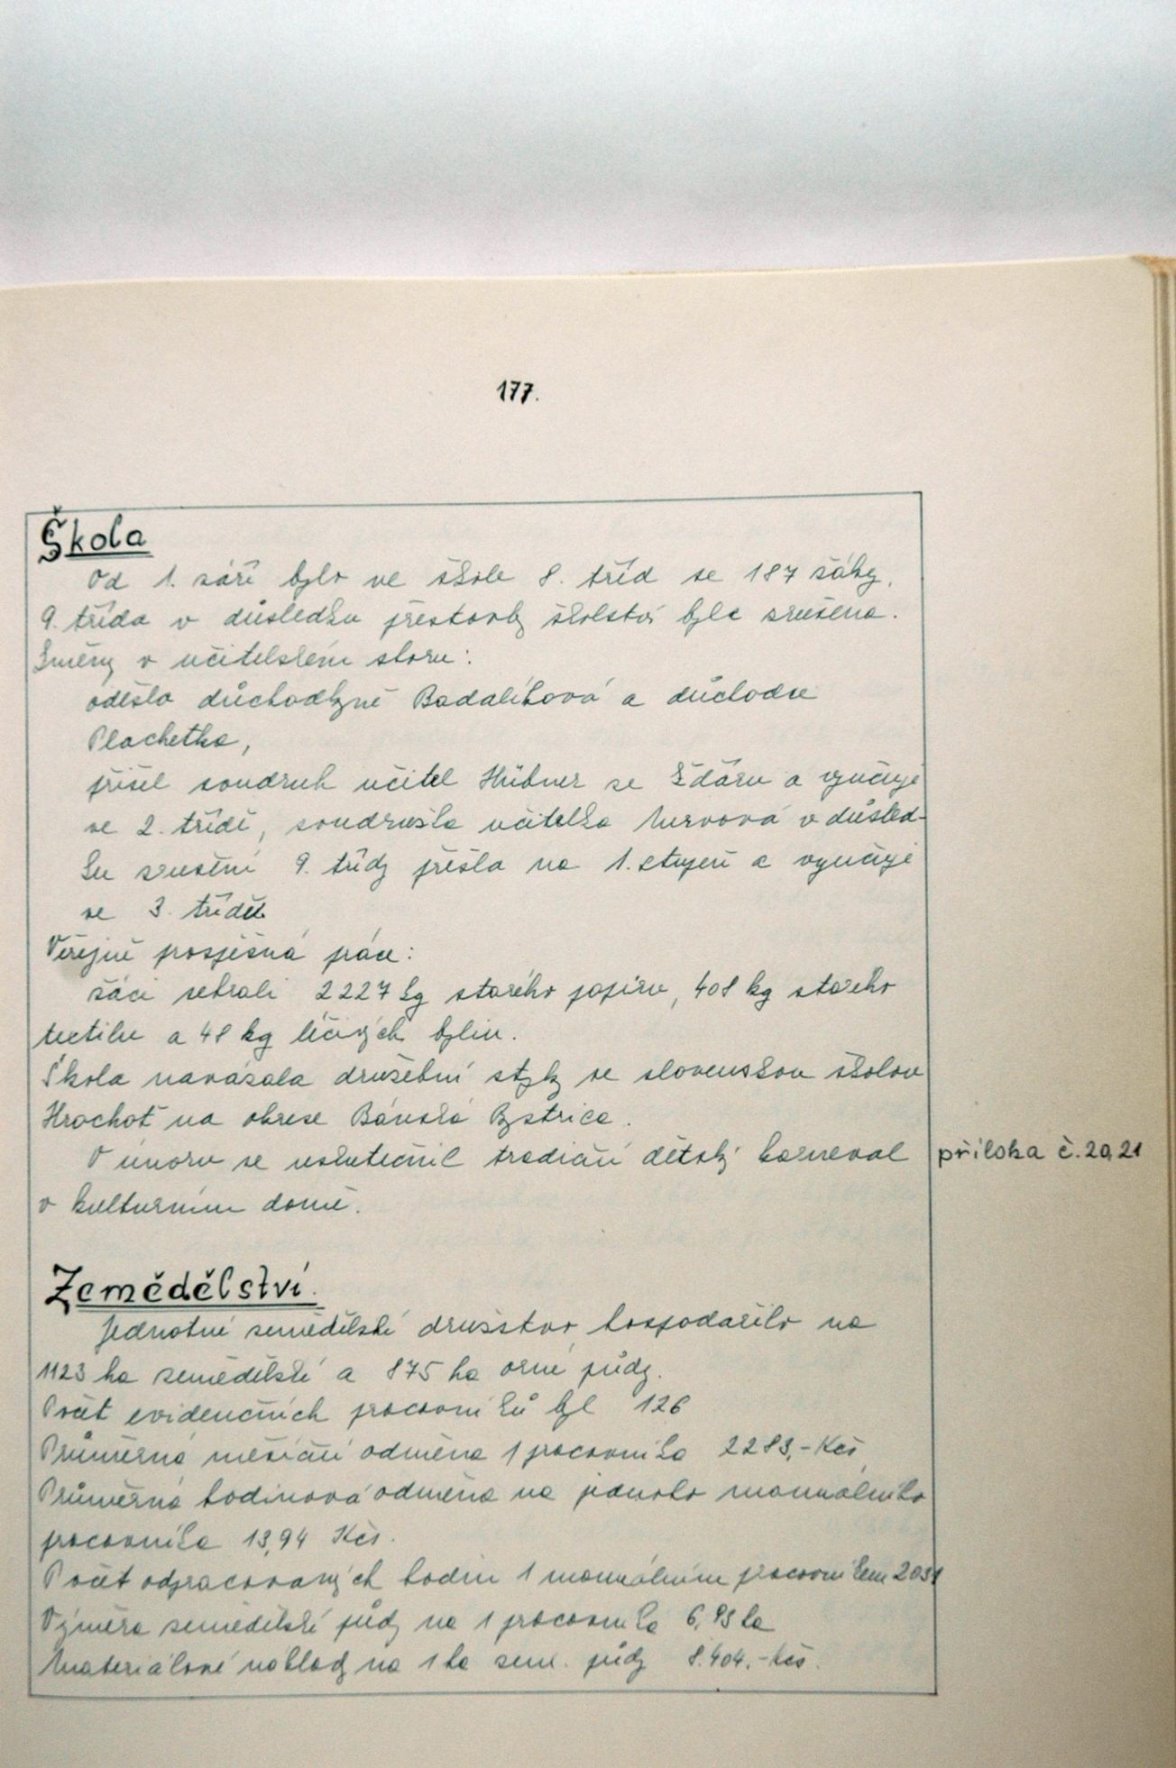 177.
Škola
Od 1. září bylo ve škole 8. tříd se 187 žáky.
9. třída v důsledku přestavby školství byla zrušena.
Změny v učitelském sboru:
odešla důchodkyně Badalíková a důchodce
Plachetka,
přišel soudruh učitel Hübner ze Žďáru a vyučuje
ve 2. třídě, soudružka učitelka v důsled-
ku zrušení 9. třídy přešla na 1. stupeň a vyučuje
ve 3. třídě.
Veřejně prospěšná práce:
žáci sebrali 2227 kg starého papíru, 408 kg starého
textilu a 48 kg léčivých bylin.
Škola navázala družební styky se slovenskou školou
Hrochoť na okrese Bánská Bystrica.
V únoru se uskutečnil tradiční dětský karneval
příloha č. 20, 21
v kulturním domě.
Zemědělství.
Jednotné zemědělské družstvo hospodařilo na
1123 ha zemědělské a 875 ha orné půdy.
Počet evidenčních pracovníků byl 126
Průměrná měsíční odměna 1 pracovníka 2283,- Kčs
Průměrná hodinová odměna na jednoho manuálního
pracovníka 13,94 Kčs.
Počet odpracovaných hodin 1 manuálním pracovníkem
Výměra zemědělské půdy na 1 pracovníka ha
Materiálové náklady na 1 ha zem. půdy 8.404,- Kčs.